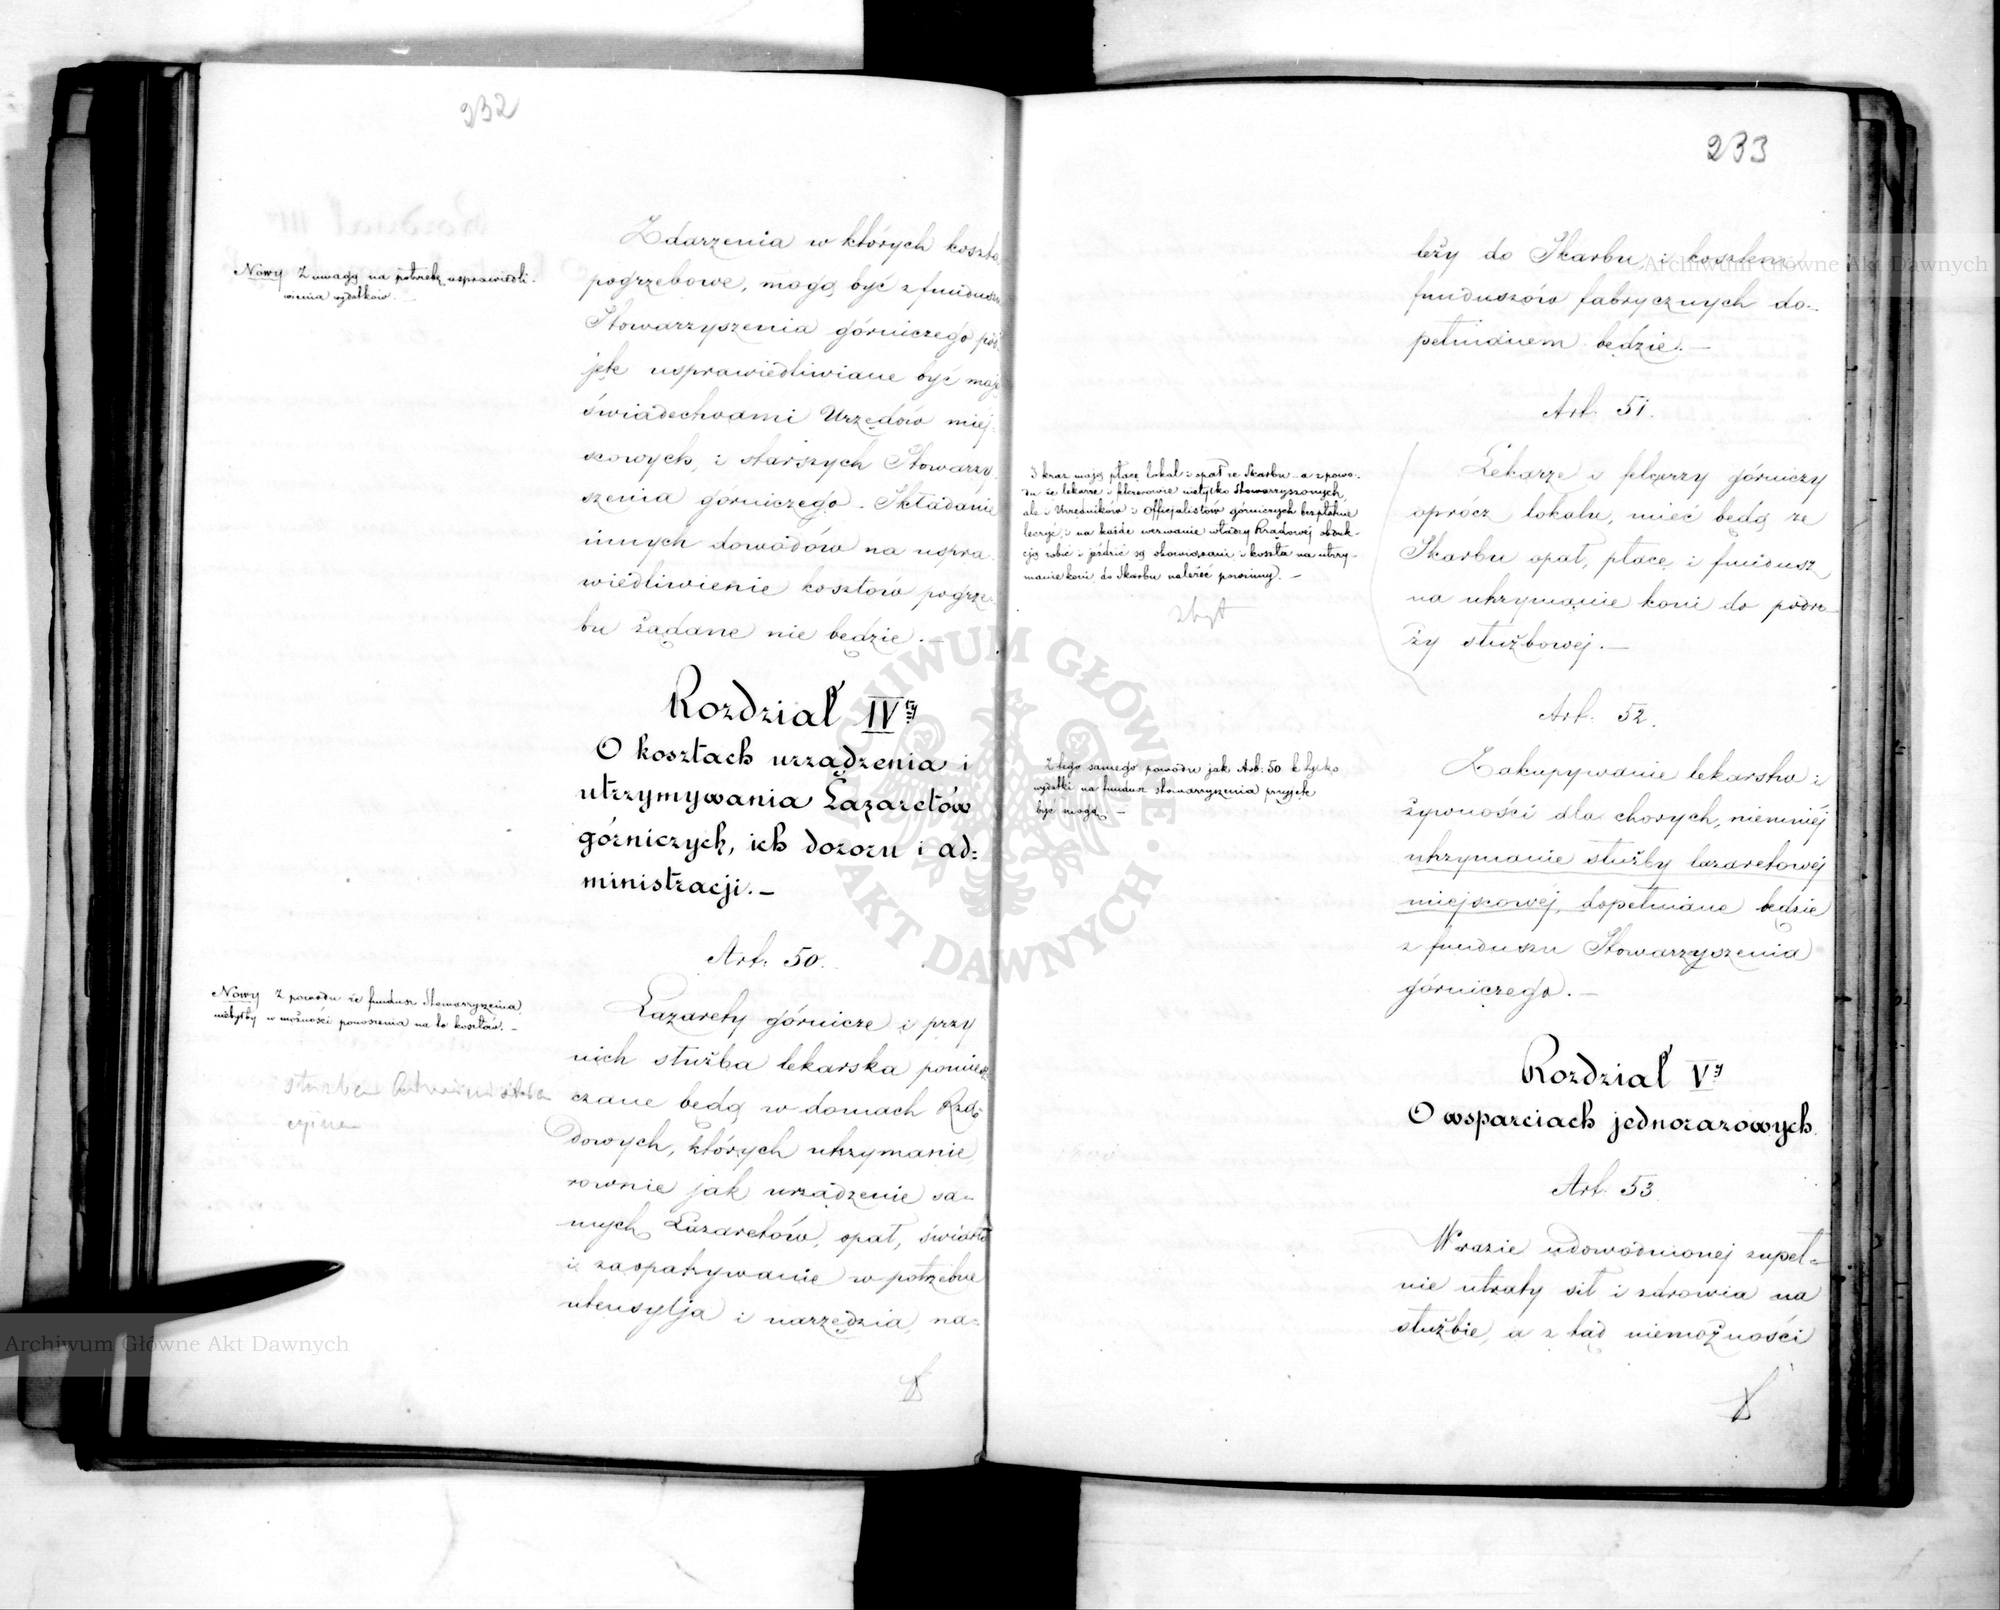 232
Nowy Z uwagi na potrzebę usprawiedli-
wienia wydatków.
Zdarzenia w których koszta
pogrzebowe, mogą być z funduszu
Stowarzyszenia górniczego pod-
jęte usprawiedliwiane być mają
świadectwami Urzędów miej-
scowych, i starszych Stowarzy-
szenia górniczego. Składanie
innych dowodów na uspra-
wiedliwienie kosztów pogrze-
bu żądane nie będzie. —
Rozdział IVty
O kosztach urządzenia i
utrzymywania Lazaretów
górniczych, ich dozoru i ad=
ministracji. —
Art: 50.
Nowy Z powodu że fundusz Stowarzyszenia
niebyłby w możności ponoszenia na to kosztów. —
służba
Lazarety górnicze i przy
nich służba lekarska pomiesz-
czane będą w domach Rzą-
dowych, których utrzymanie
rownie jak urządzenie sa-
mych Lazaretów, opał, światło
i zaopatrywanie w potrzebne
utensylja i narzędzia, na=
233
leży do Skarbu i kosztem
funduszów fabrycznych do-
pełnianem będzie. —
Art: 51.
I teraz mają płacę lokal i opał ze Skarbu – a z powo-
du że lekarze i felczerowie nietylko Stowarzyszonych,
ale i Urzędników i Officjalistów górniczych bezpłatnie
leczyć, i na każde wezwanie władzy Rządowej obduk-
cje robić i jeździć są obowiązani i koszta na utrzy-
manie koni, do Skarbu należeć powinny. —
zbyt
Lekarze i felczerzy górniczy
oprócz lokalu, mieć będą ze
Skarbu opał, płacę i fundusz
na utrzymanie koni do podró-
ży służbowej. —
Art. 52.
Z tego samego powodu jak Art: 50 te tylko
wydatki na fundusz stowarzyszenia przyjęte
być mogą. —
Zakupywanie lekarstw i
żywności dla chorych, niemniej
utrzymanie służby lazaretowej
miejscowej, dopełniane będzie
z funduszu Stowarzyszenia
górniczego. —
Rozdział Vty
O wsparciach jednorazowych.
Art: 53.
W razie udowodnionej zupeł-
nie utraty sił i zdrowia na
służbie, a z tąd niemożności
Archiwum Główne Akt Dawnych
Archiwum Główne Akt Dawnych
ARCHIWUM GŁÓWNE • AKT DAWNYCH •